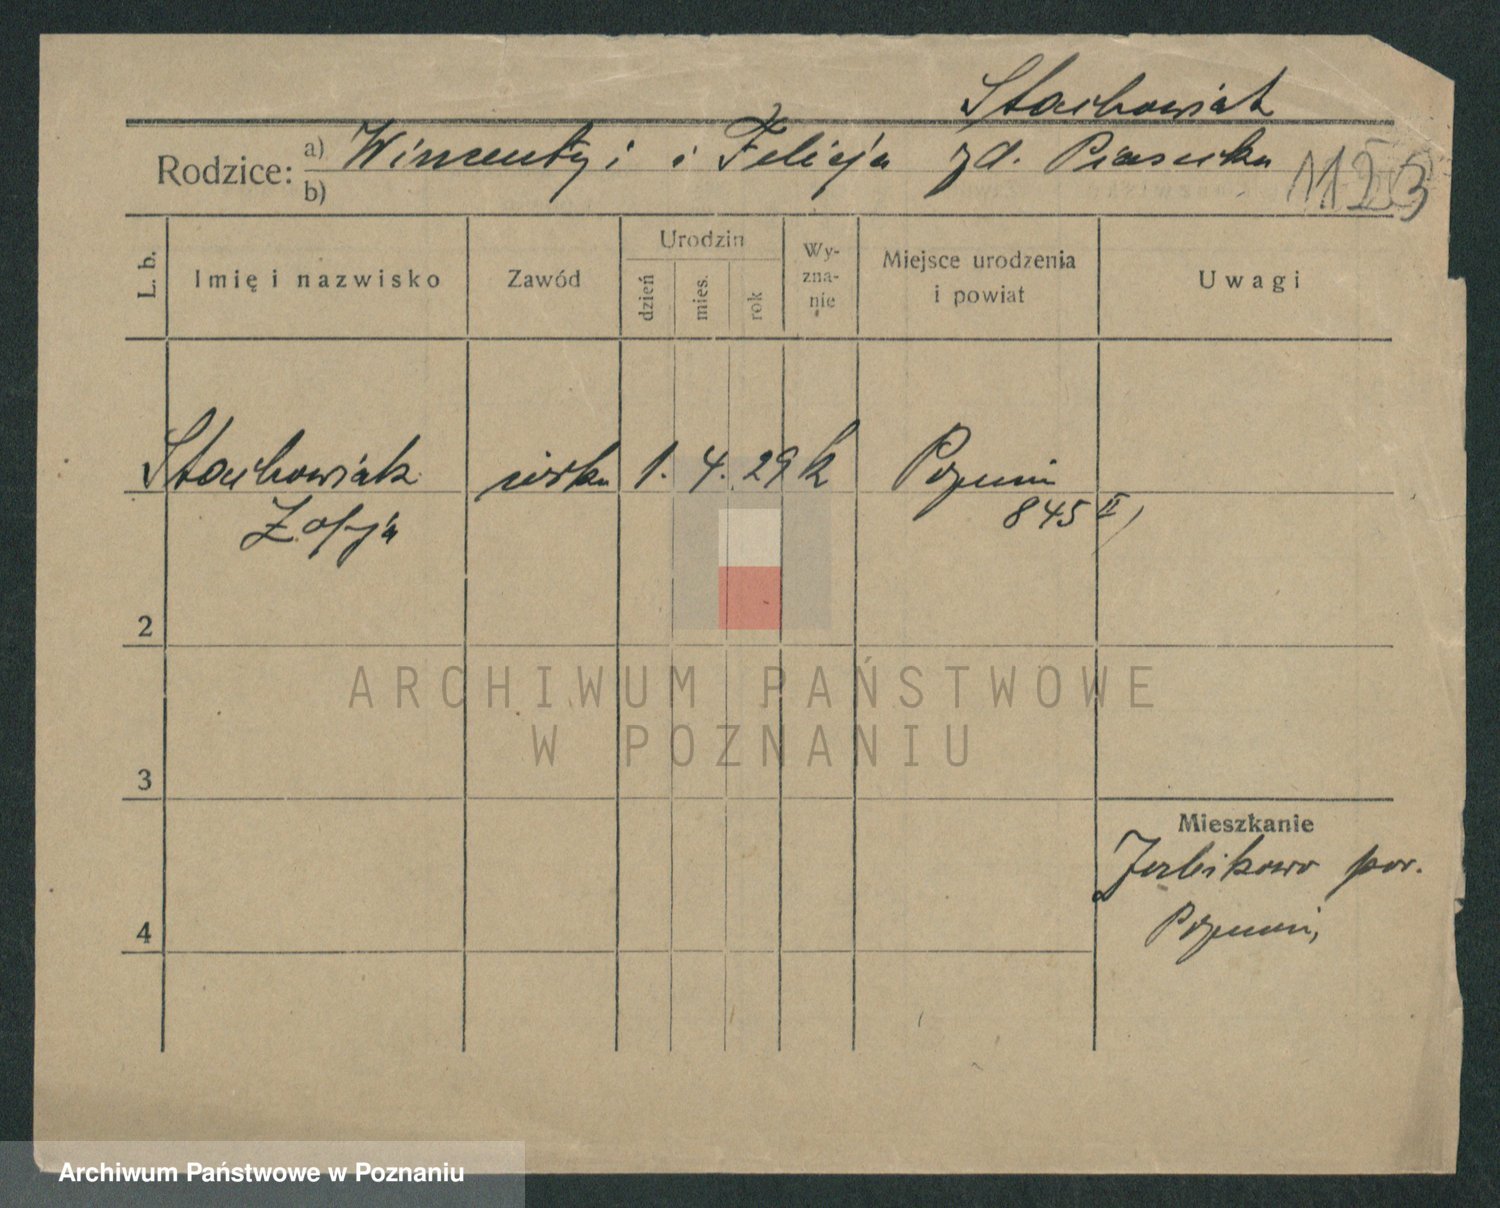 Stachowiak
Rodzice: a) Wincenty i Felicja zd. Piasecka
b)
1123
L. b. Imię i nazwisko Zawód Urodzin dzień mies. rok Wy-zna-nie Miejsce urodzenia i powiat Uwagi
Stachowiak córka 1. 4. 29 k Poznań
Zofja 845 II
2
ARCHIWUM PAŃSTWOWE
W POZNANIU
3
Mieszkanie
Żabikowo pow.
4 Poznań,
Archiwum Państwowe w Poznaniu